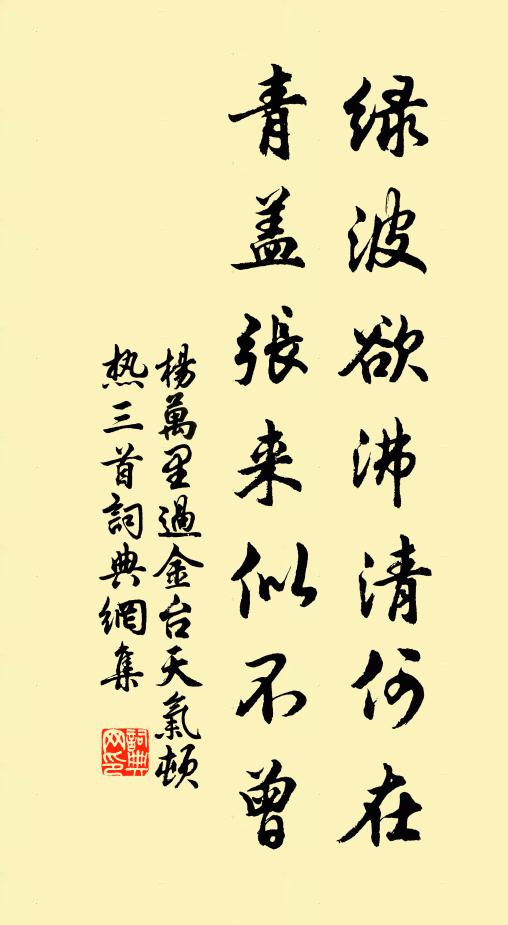 绿波欲沸清何在
青盖張来似不曾
楊萬里過金台天氣頓
热三首詞典網集
詞典
网印